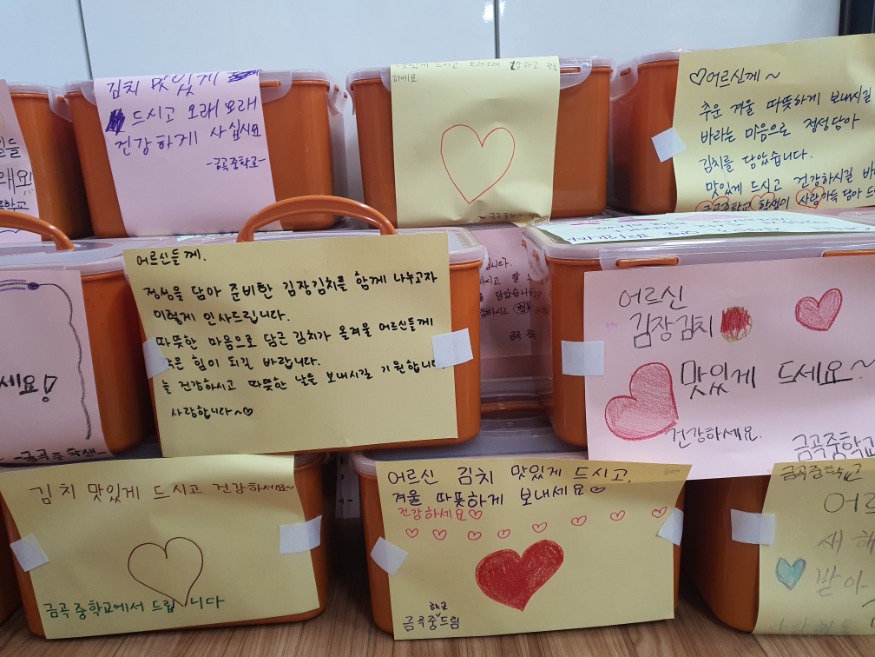 김치 맛있게
드시고 오래오래
건강하게 사십시요
-금곡중학교-
하세요
♡어르신께~
추운 겨울 따뜻하게 보내시길
바라는 마음으로 정성담아
김치를 담았습니다.
맛있게 드시고 건강하시길
금곡중학교 학생이 사랑가득 담아
어르신들께.
정성을 담아 준비한 김장김치를 함께 나누고자
이렇게 인사드립니다.
따뜻한 마음으로 담근 김치가 올겨울 어르신들께
힘이 되길 바랍니다.
늘 건강하시고 따뜻한 날을 보내시길 기원합니다
사랑합니다~♡
어르신
김장김치
맛있게 드세요~
건강하세요.
금곡중학교
세요!
-금곡중학생-
김치 맛있게 드시고 건강하세요~
금곡중학교에서 드립니다
어르신 김치 맛있게 드시고,
겨울 따뜻하게 보내세요♡
건강하세요♡
금곡중학교드림
금곡중학교
새해
받아